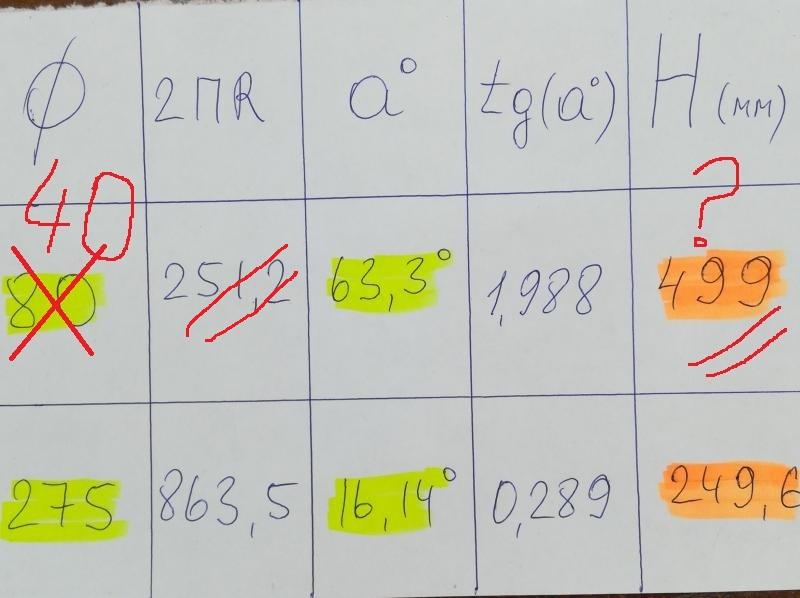 Ø 2ПR a° tg(a°) H (мм)
40 ?
80 251,2 63,3° 1,988 499
275 863,5 16,14° 0,289 249,6